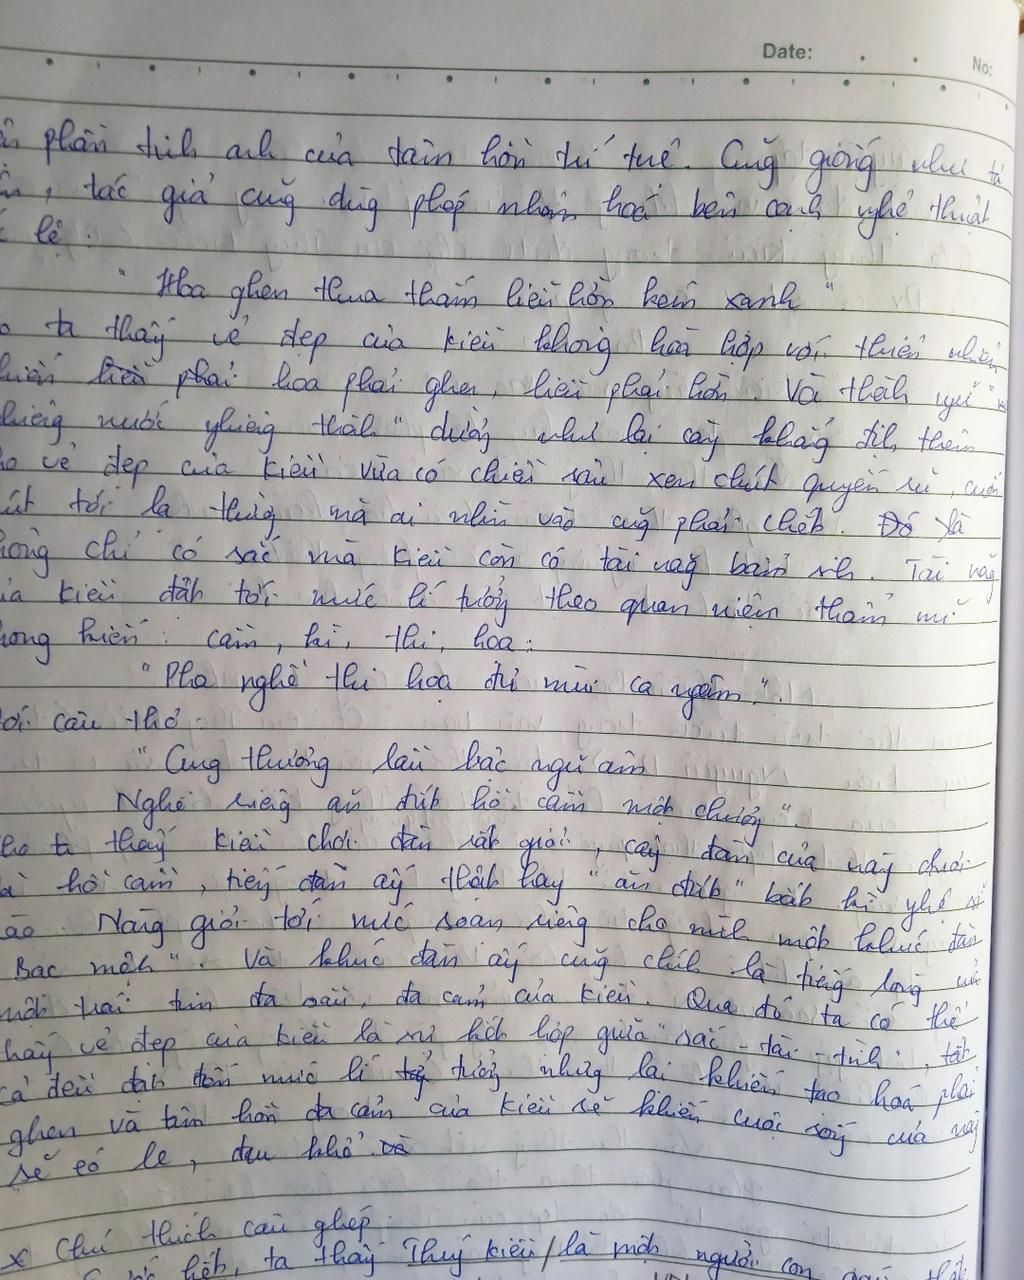 Date: No:
phần tinh anh của tâm hồn trí tuệ. Cũng giống như tả
, tác giả cũng dùng phép nhân hoá bên cạnh nghệ thuật
lệ :
" Hoa ghen thua thắm liễu hờn kém xanh "
ta thấy vẻ đẹp của Kiều không hoà hợp với thiên nhiên
khiến liễu phải hoa phải ghen, liễu phải hờn. Và thành ngữ "
nghiêng nước nghiêng thành" dường như lại càng khẳng định thêm
vẻ đẹp của Kiều vừa có chiều sâu xen chút quyến rũ, cuốn
hút tới lạ thường mà ai nhìn vào cũng phải chết. Đó là
không chỉ có sắc mà Kiều còn có tài năng bẩm sinh. Tài năng
của Kiều đạt tới mức lí tưởng theo quan niệm thẩm mĩ
phong kiến : cầm, kì, thi, hoạ :
" Pha nghề thi hoạ đủ mùi ca ngâm ".
câu thơ :
" Cung thương làu bậc ngũ âm
Nghề riêng ăn đứt hồ cầm một chương ".
ta thấy Kiều chơi đàn rất giỏi, cây đàn của nàng chơi
là hồ cầm, tiếng đàn ấy thật hay " ăn đứt " bất kì nghệ sĩ
nào. Nàng giỏi tới mức soạn riêng cho mình một khúc đàn
Bạc mệnh". Và khúc đàn ấy cũng chính là tiếng lòng của
một trái tim đa sầu, đa cảm của Kiều. Qua đó ta có thể
thấy vẻ đẹp của Kiều là sự kết hợp giữa " sắc - tài - tình ", tất
cả đều đạt đến mức lí tưởng nhưng lại khiến tạo hoá phải
ghen và tâm hồn đa cảm của Kiều sẽ khiến cuộc sống của nàng
sẽ éo le, đau khổ.
x Chú thích câu ghép :
hết, ta thấy Thuý Kiều / là một người con gái